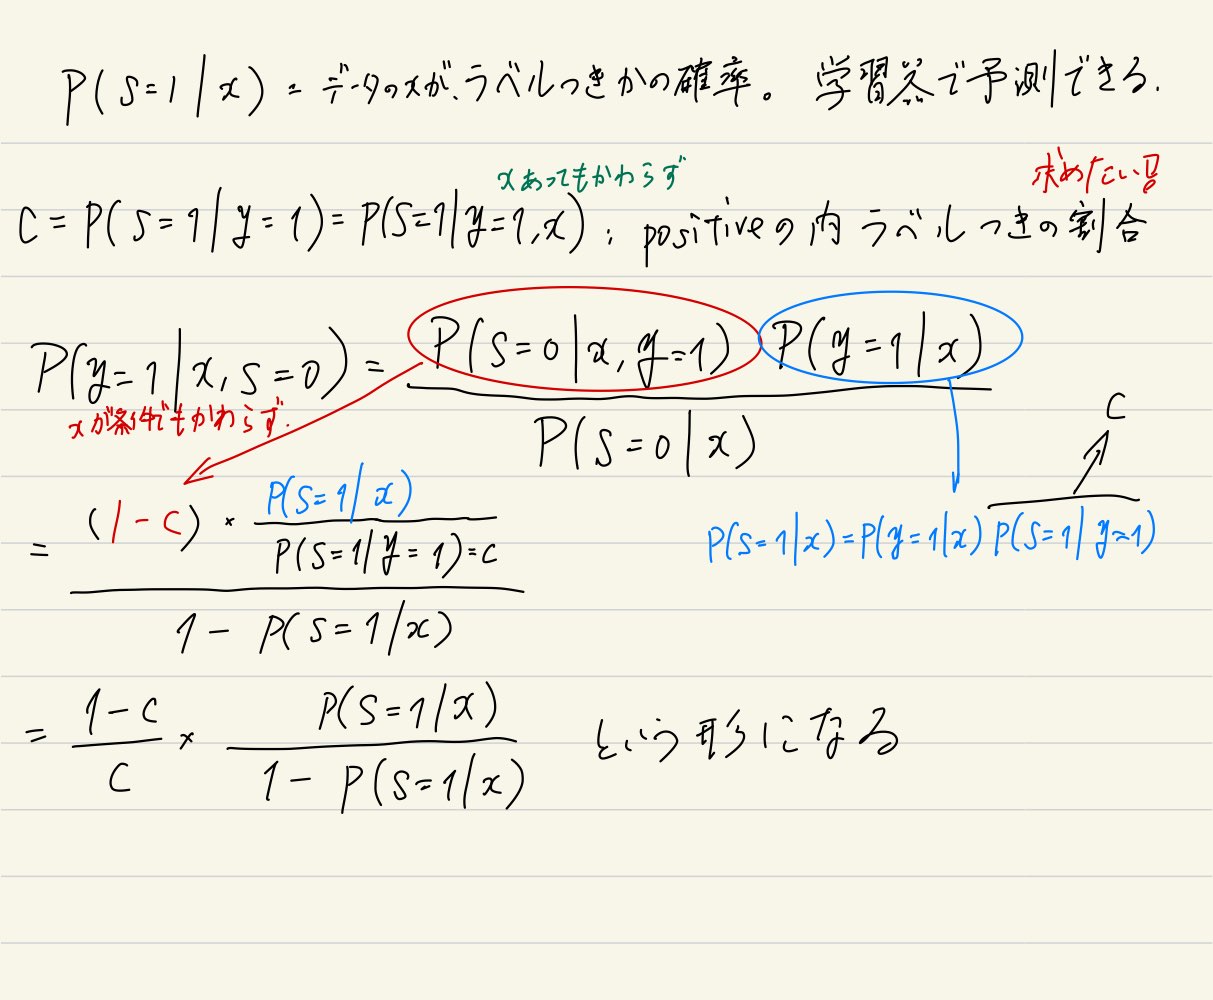 P(S=1|x) = データのxが、ラベルつきかの確率。 学習器で予測できる.
xあってもかわらず
求めたい!!
C = P(S=1|y=1) = P(S=1|y=1,x) : positiveの内 ラベルつきの割合
P(y=1|x,s=0) = P(S=0|x,y=1) P(y=1|x)
P(S=0|x)
xが条件でもかわらず.
C
(1-c) × P(S=1|x)
P(S=1|y=1)=c
P(S=1|x)=P(y=1|x) P(S=1|y=1)
=
1 - P(S=1|x)
= 1-c / c × P(S=1|x) / 1 - P(S=1|x) という形になる